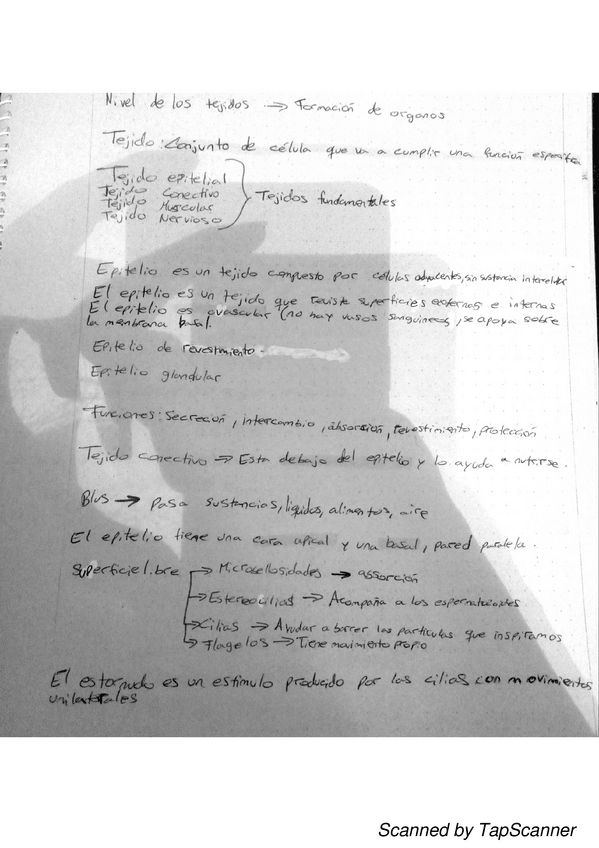 Nivel de los tejidos → Formación de organos
Tejido: Conjunto de célula que va a cumplir una función especifica
Tejido epitelial
Tejido Conectivo
Tejido Muscular
Tejido Nervioso
Tejidos fundamentales
Epitelio es un tejido compuesto por células adyacentes, sin sustancia intercelular
El epitelio es un tejido que reviste superficies externas e internas
El epitelio es avascular (no hay vasos sanguineos, se apoya sobre
la membrana basal.
Epitelio de revestimiento.
Epitelio glandular
Funciones: Secreción, intercambio, absorsión, revestimiento, protección
Tejido conectivo → Esta debajo del epitelio y lo ayuda a nutrirse.
→ Pasa sustancias, liquidos, alimentos, aire
El epitelio tiene una cara apical y una basal, pared paralela.
Superficie libre
→ Microvellosidades → absorción
→ Estereocilias → Acompaña a los espermatozoides
→ Cilias → Ayudar a barrer las particulas que inspiramos
→ Flagelos → Tiene movimiento propio
El estornudo es un estimulo producido por las cilias con movimientos
unilaterales
Scanned by TapScanner